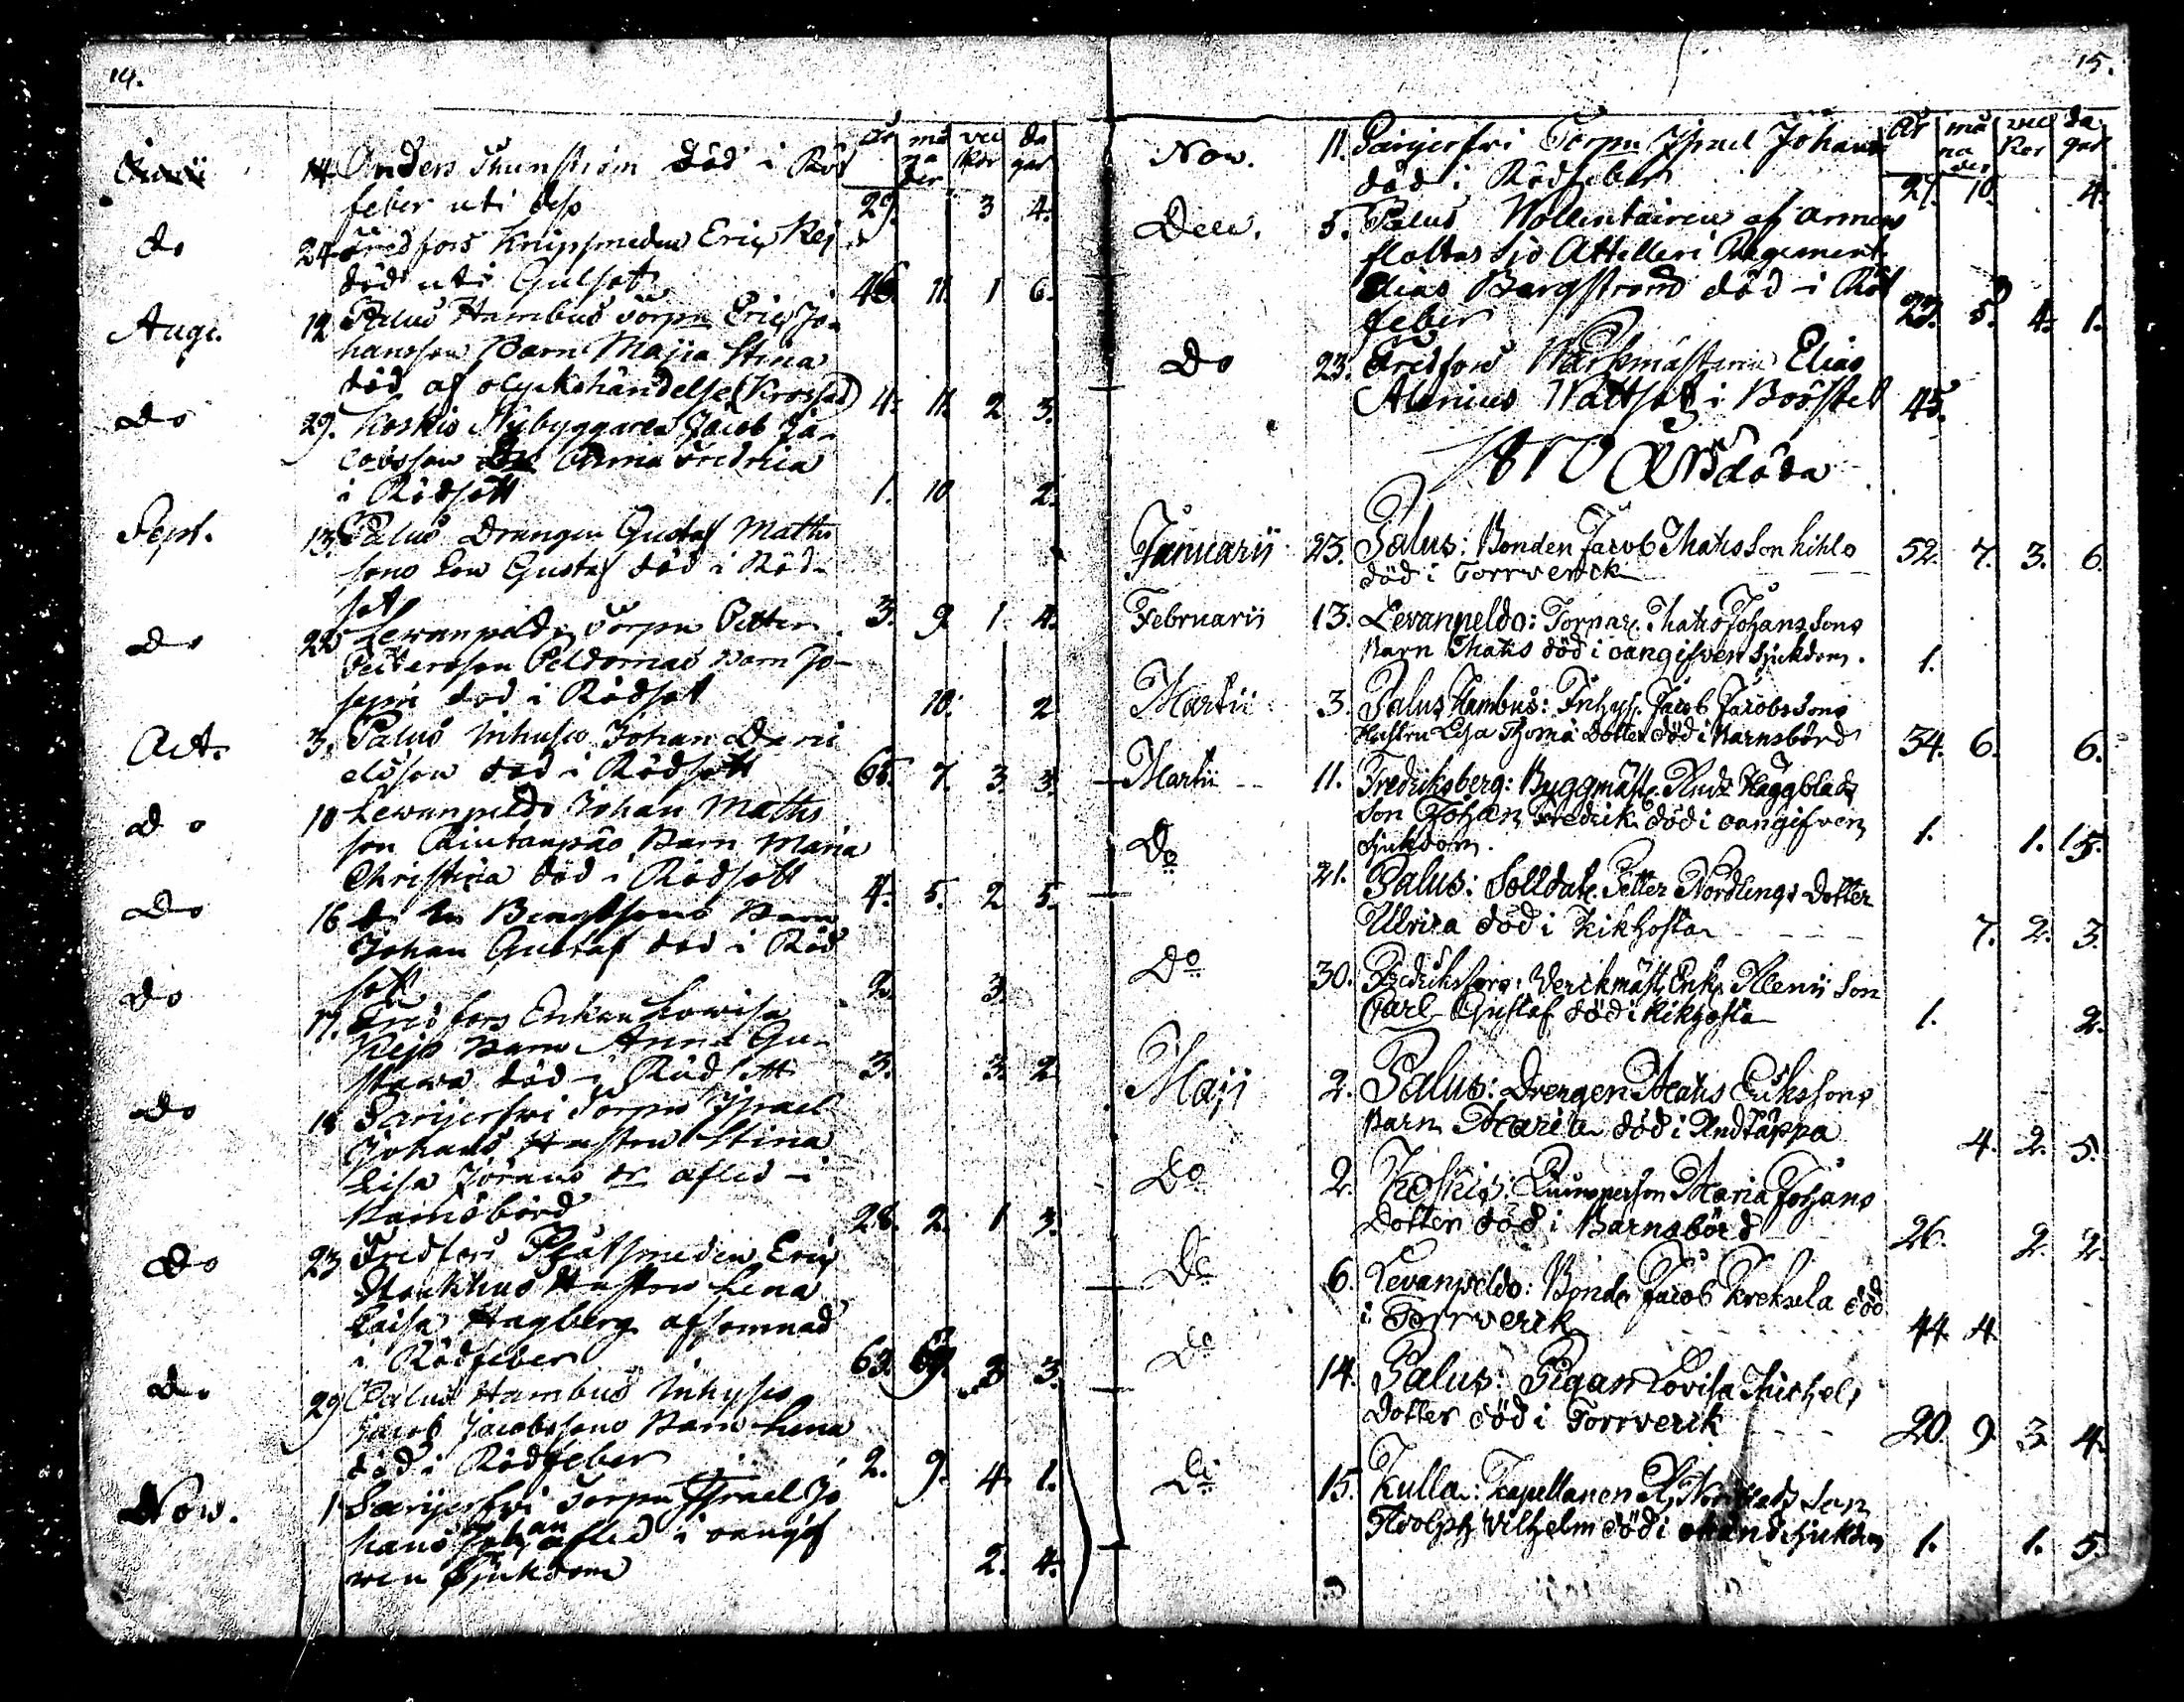 14.
år må na der vec kor da gar
Junii 14 Anders Thunström död i Röt
feber uti dess 29. 3 4.
do 24 Fredfors Knipsmeden Eric Rej
död uti Gulsot 46. 11. 1 6.
Aug. 12 Palus Hambus Torpn Eric Jo-
hansson Barn Majia Stina
död af olyckshändelse (Krossad) 4. 11. 2 3.
do 29. Koskis Nybyggaren Jacob Ja-
cobsson Anna Fredrica
i Rödsott 1. 10 2.
Sept. 13. Palus Drängen Gustaf Matts
sons Son Gustaf död i Röd-
sot 3. 9 1. 4.
do 22 Lewanpeldo Torpn Petter
Pettersson Peldomas Barn Jo-
sepri död i Rödsot 10. 2
Oct. 3. Palus Inhyses Johan Dani
elsson död i Rödsott 65. 7. 3. 3.
do 10 Lewanpeldo Johan Matts
son Barn Maria
Christina död i Rödsott 4. 5. 2 5.
do 16 do Bengtsons Barn
Johan Gustaf död i Röd
sott 2. 3.
do 17. Fredfors Enkan Lowisa
Rejs Barn Anna Gu-
stawa död i Rödsott 3. 3. 2
do 18 Sarijerfwi Torpn Israel
Johans Hustru Stina
Lisa Jörans dr afled i
Barnsbörd 28. 2. 1 3.
do 23 Fredfors Eric
Hustru Lena
Caisa Hagberg afsomnad
i Rödfeber 63. 3 3.
do 29 Palus Hambus Inhyses
Jacob Jacobssons Barn Lena
död i Rödfeber 2. 9. 4 1.
Now. 1 Sarijerfwi Torpn Israel Jo
hans Johan afled i oangif
wen Sjukdom 2. 4.
15.
År må na der vec kor da gar
Now. 11. Sarijerfwi Torpn Israel Johans
död i Rödfeber 21. 10. 4.
Dec. 5. Palus Wollentairen af armens
flottas Sjö Attelleri Regement
Elias Bergstrand död i Röt
feber 23. 5. 4. 1.
do 23. Fredfors Werkmästaren Elias
Alenius Wattsot i Bröstet 45.
1810 Års döda
Januarii 23. Palus: Bonden Jacob Matsson Kihlo
död i Torrverck 52. 7. 3. 6.
Februarii 13. Levanpeldo: Torpar. Mats Johanssons
Barn Mats död i oangifven Sjukdom. 1.
Martii 3. Palus Hambus: Inhys. Jacob Jacobssons
Hustru Lisa Thoma Dotter död i Barnsbörd 34. 6. 6.
Martii 11. Fredriksberg: Byggmäst. Häggblads
Son Johan Fredrik död i oangifven
Sjukdom. 1. 1. 5.
Do 21. Palus: Solldat. Petter Nordlings Dotter
Ulrica död i Kikhosta 7. 2. 3.
Do 30. Fredriksfors: Verckmäst. Enk. Alenii Son
Carl Gustaf död i Kikhosta 1. 2.
Maji 2. Palus: Drengen Mats Erikssons
Barn Maria död i Andtäppa 4. 2. 5.
Do 2. Koskis: Quinsperson Maria Johans
Dotter död i Barnsbörd 26. 2. 2.
Do 6. Levanpeldo: Bonde Jacob Kreksela död
i Torrverck 44. 4.
Do 14. Palus: Pigan Lovisa Michels
Dotter död i Torrverck 20. 9 3. 4.
Do 15. Kulla: Kapellanen Son
Adolph Vilhelm död i okänd Sjukdm 1. 1. 5.